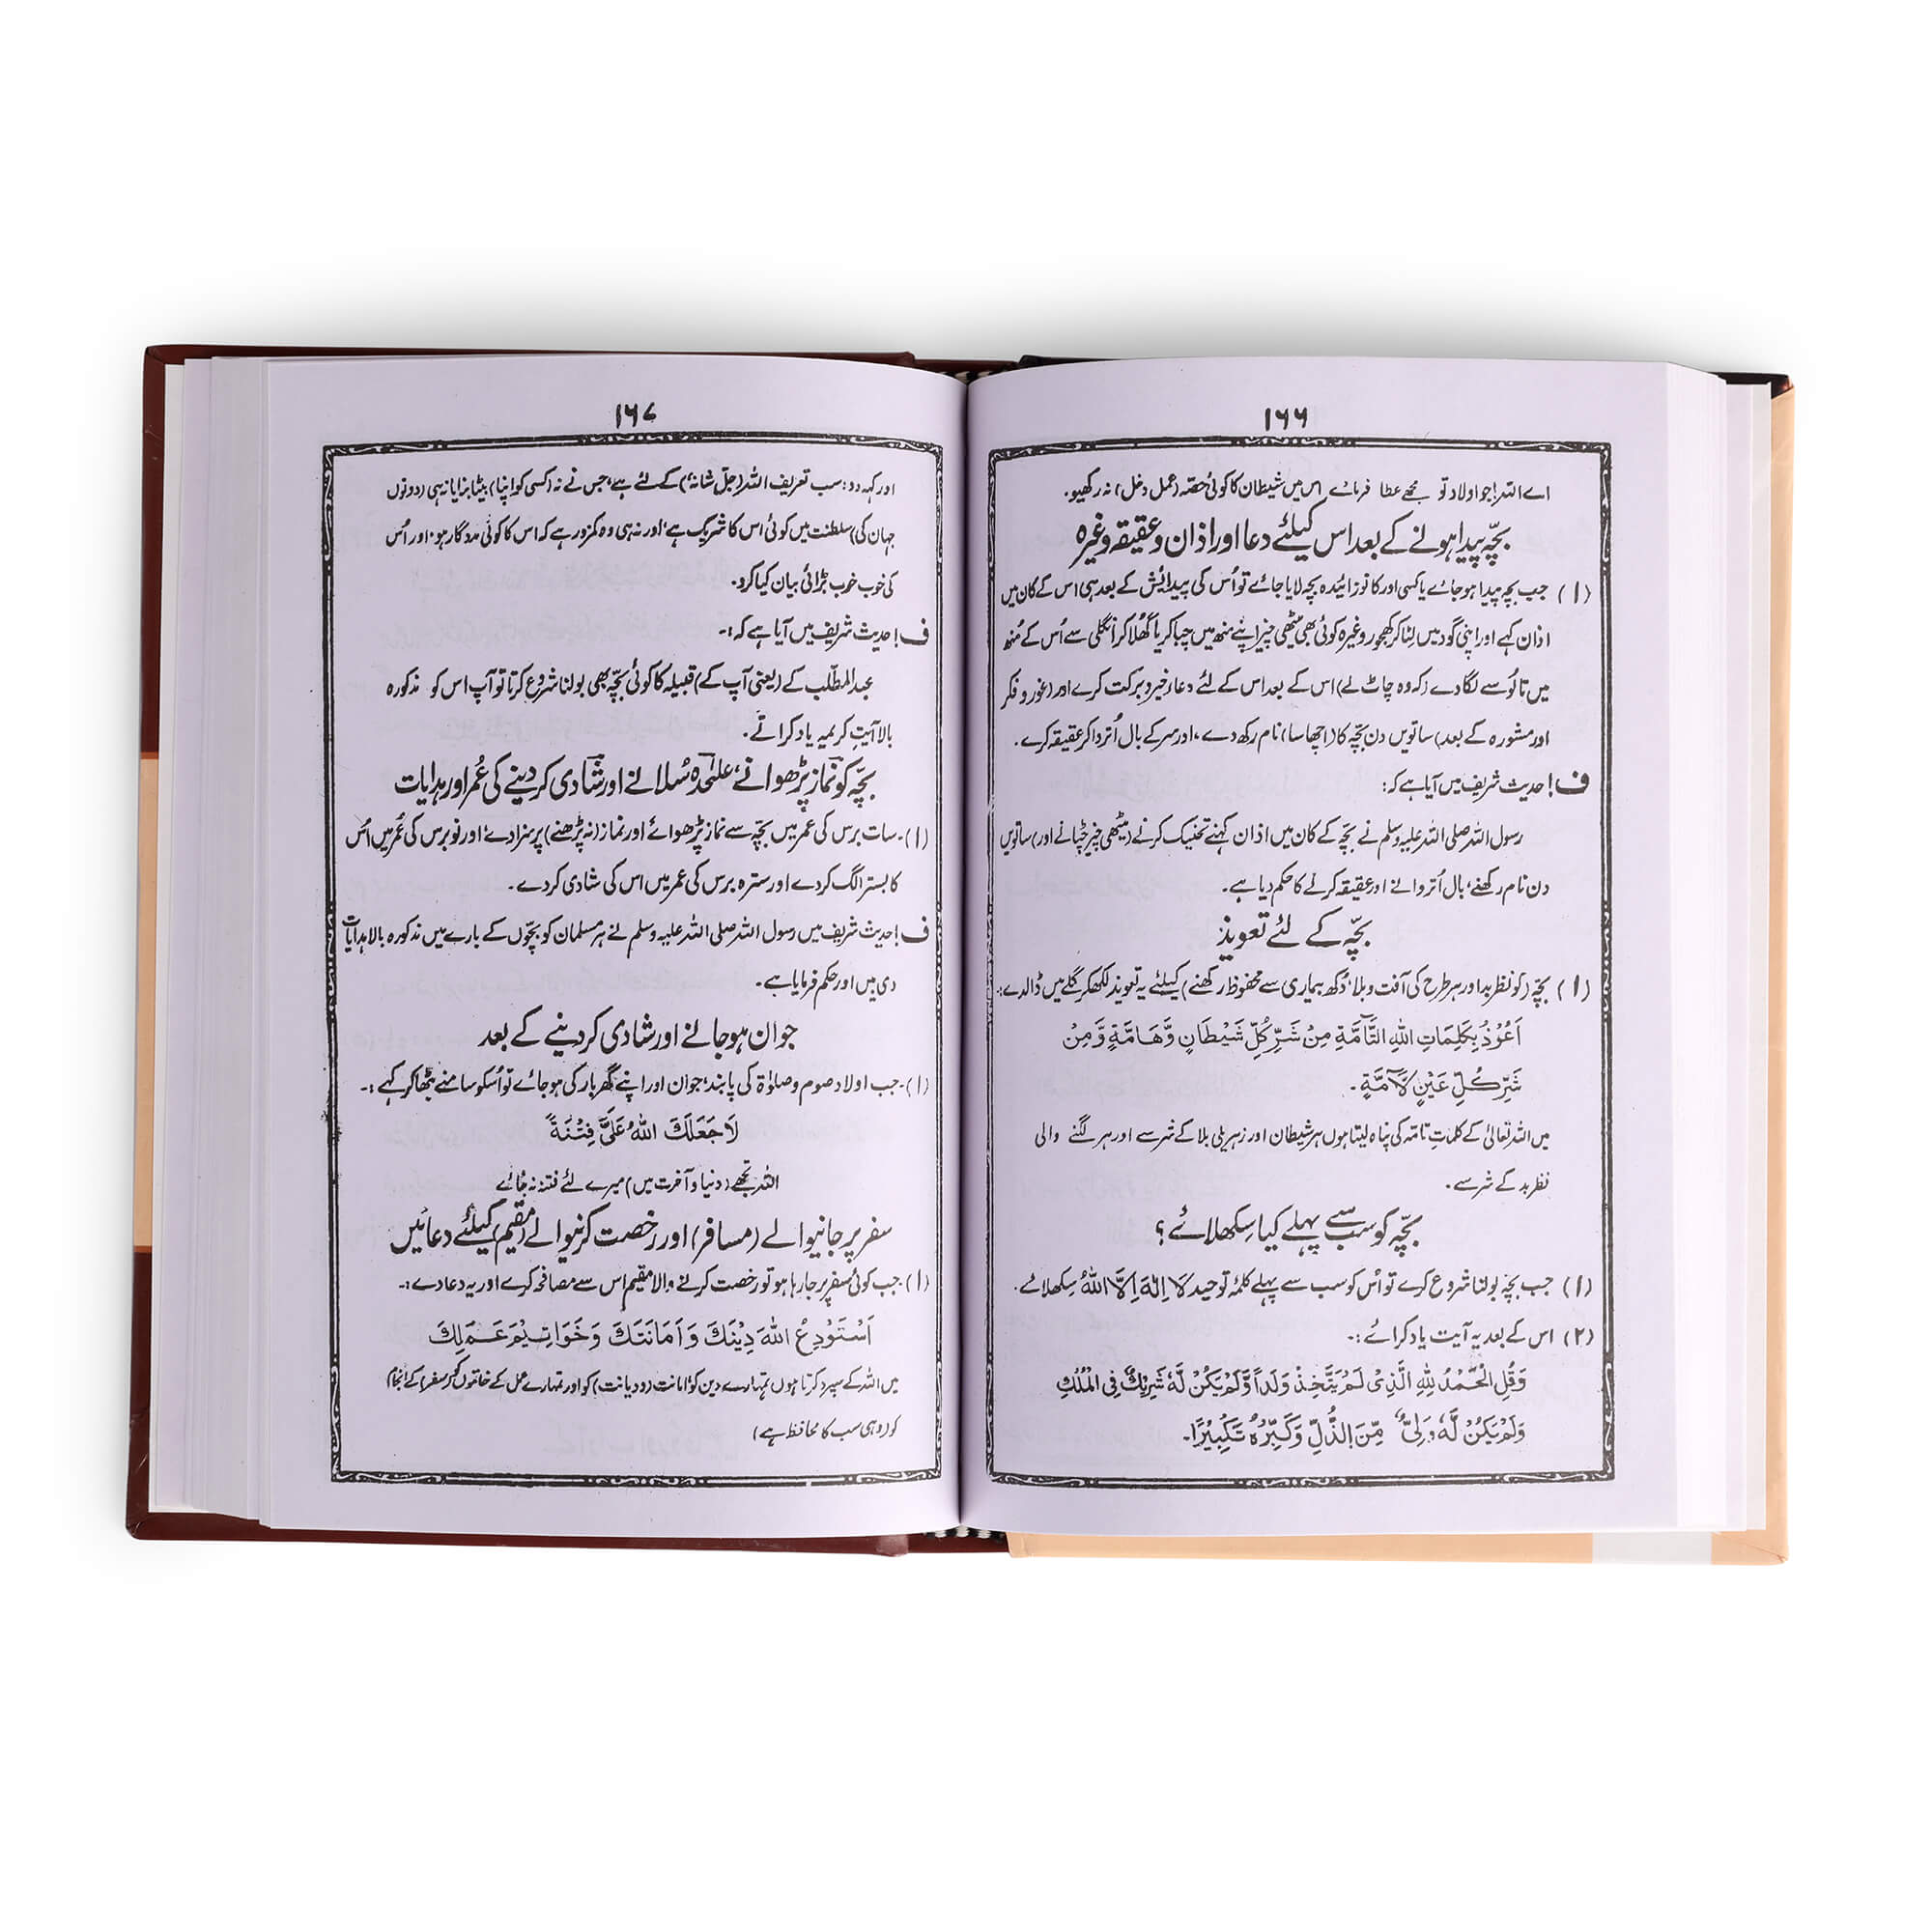 ۱۶۶
اے اللہ! جو اولاد تو مجھے عطا فرمائے اس میں شیطان کا کوئی حصّہ (عمل دخل) نہ رکھیو۔
بچّہ پیدا ہونے کے بعد اس کیلئے دعا اور اذان و عقیقہ وغیرہ
(۱) جب بچہ پیدا ہو جائے یا کسی اور کا نوزائیدہ بچہ لایا جائے تو اُس کی پیدائش کے بعد ہی اس کے کان میں
اذان کہے اور اپنی گود میں لٹا کر کھجور وغیرہ کوئی بھی میٹھی چیز اپنے منھ میں چبا کر یا گھُلا کر انگلی سے اُس کے مُنھ
میں تالُو سے لگا دے (کہ وہ چاٹ لے) اس کے بعد اس کے لئے دعاءِ خیر و برکت کرے اور (غور و فکر
اور مشورہ کے بعد) ساتویں دن بچّہ کا (اچھا سا) نام رکھ دے، اور سر کے بال اُتروا کر عقیقہ کرے۔
ف! حدیث شریف میں آیا ہے کہ:
رسول اللہ صلی اللہ علیہ وسلم نے بچّہ کے کان میں اذان کہنے تحنیک کرنے (میٹھی چیز چٹانے اور) ساتویں
دن نام رکھنے، بال اُتروانے اور عقیقہ کرنے کا حکم دیا ہے۔
بچّہ کے لئے تعویذ
(۱) بچّہ (کو نظر بد اور ہر طرح کی آفت و بلا، دُکھ بیماری سے محفوظ رکھنے) کیلئے یہ تعویذ لکھ کر گلے میں ڈالدے:
اَعُوْذُ بِكَلِمَاتِ اللّٰهِ التَّآمَّةِ مِنْ شَرِّ كُلِّ شَيْطَانٍ وَّهَامَّةٍ وَّمِنْ
شَرِّ كُلِّ عَيْنٍ لَّآمَّةٍ۔
میں اللہ تعالیٰ کے کلماتِ تامّہ کی پناہ لیتا ہوں ہر شیطان اور زہریلی بلا کے شر سے اور ہر لگنے والی
نظر بد کے شر سے۔
بچّہ کو سب سے پہلے کیا سکھلائے؟
(۱) جب بچہ بولنا شروع کرے تو اُس کو سب سے پہلے کلمۂ توحید لَا اِلٰهَ اِلَّا اللّٰهُ سکھلائے۔
(۲) اس کے بعد یہ آیت یاد کرائے:۔
وَقُلِ الْحَمْدُ لِلّٰهِ الَّذِیْ لَمْ يَتَّخِذْ وَلَدًا وَّلَمْ يَكُنْ لَّهٗ شَرِيْكٌ فِی الْمُلْكِ
وَلَمْ يَكُنْ لَّهٗ وَلِیٌّ مِّنَ الذُّلِّ وَكَبِّرْهُ تَكْبِيْرًا۔
۱۶۷
اور کہہ دو: سب تعریف اللہ (جلّ شانہٗ) کے لئے ہے، جس نے نہ (کسی کو اپنا) بیٹا بنایا نہ ہی (دونوں
جہان کی) سلطنت میں کوئی اس کا شریک ہے، اور نہ ہی وہ کمزور ہے کہ اس کا کوئی مددگار ہو، اور اُس
کی خوب خوب بڑائی بیان کیا کرو۔
ف! حدیث شریف میں آیا ہے کہ:۔
عبدالمطّلب کے (یعنی آپ کے) قبیلہ کا کوئی بچّہ بھی بولنا شروع کرتا تو آپ اس کو مذکورہ
بالا آیتِ کریمہ یاد کراتے۔
بچّہ کو نماز پڑھوانے، علٰیحدہ سُلانے اور شادی کر دینے کی عُمر اور ہدایات
(۱)۔ سات برس کی عمر میں بچّہ سے نماز پڑھوائے اور نماز (نہ پڑھنے) پر سزا دے اور نو برس کی عُمر میں اُس
کا بستر الگ کر دے اور سترہ برس کی عمر میں اس کی شادی کر دے۔
ف! حدیث شریف میں رسول اللہ صلی اللہ علیہ وسلم نے ہر مسلمان کو بچّوں کے بارے میں مذکورہ بالا ہدایات
دی ہیں اور حکم فرمایا ہے۔
جوان ہو جانے اور شادی کر دینے کے بعد
(۱)۔ جب اولاد صوم و صلوٰۃ کی پابند، جوان اور اپنے گھر بار کی ہو جائے تو اُسکو سامنے بٹھا کر کہے:۔
لَا جَعَلَكَ اللّٰهُ عَلَیَّ فِتْنَةً
اللہ تجھے (دنیا و آخرت میں) میرے لئے فتنہ نہ بنائے
سفر پر جانیوالے (مسافر) اور رخصت کرنیوالے (مقیم) کیلئے دعائیں
(۱)۔ جب کوئی سفر پر جا رہا ہو تو رخصت کرنے والا مقیم اس سے مصافحہ کرے اور یہ دعا دے:۔
اَسْتَوْدِعُ اللّٰهَ دِيْنَكَ وَاَمَانَتَكَ وَخَوَاتِيْمَ عَمَلِكَ
میں اللہ کے سپرد کرتا ہوں تمہارے دین کو، امانت (و دیانت) کو اور تمہارے عمل کے خاتموں کو (سفر کے انجام)
کو (وہی سب کا محافظ ہے)